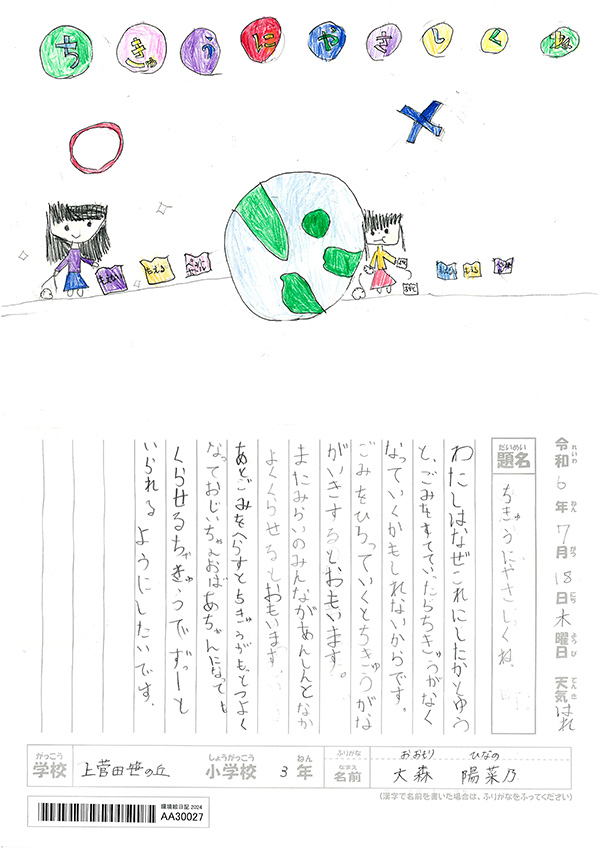 ちきゅうにやさしくね
もえない
もえる
令和6年7月18日木曜日 天気はれ
れいわ ねん がつ にち ようび てんき
だいめい
題名
ちきゅうにやさしくね。
わたしはなぜこれにしたかとゆう
と、ごみをすてていたらちきゅうがなく
なっていくかもしれないからです。
ごみをひろっていくとちきゅうがな
がいきするとおもいます。
またみらいのみんながあんしんとなか
よくくらせるとおもいます。
あとごみをへらすとちきゅうがもっとつよく
なっておじいちゃんおばあちゃんになっても
くらせるちきゅうでずーーと
いられるようにしたいです.
がっこう しょうがっこう ねん
学校 上菅田笹の丘 小学校 3年
ふりがな おおもり ひなの
なまえ
名前 大森 陽菜乃
(漢字で名前を書いた場合は、ふりがなをふってください)
環境絵日記2024
AA30027